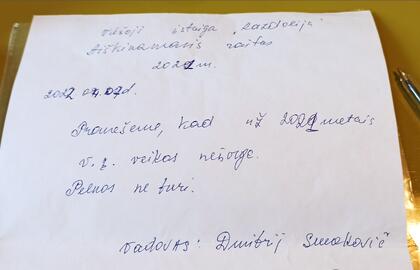 Viešoji įstaiga "Razdolija"
Aiškinamasis raštas
2021 m.
2022 04.07d.
Pranešame, kad už 2021 metais
v. į. veiklos nešvyge.
Pelnos ne turi.
Vadovas: Dmitrij Smakovič